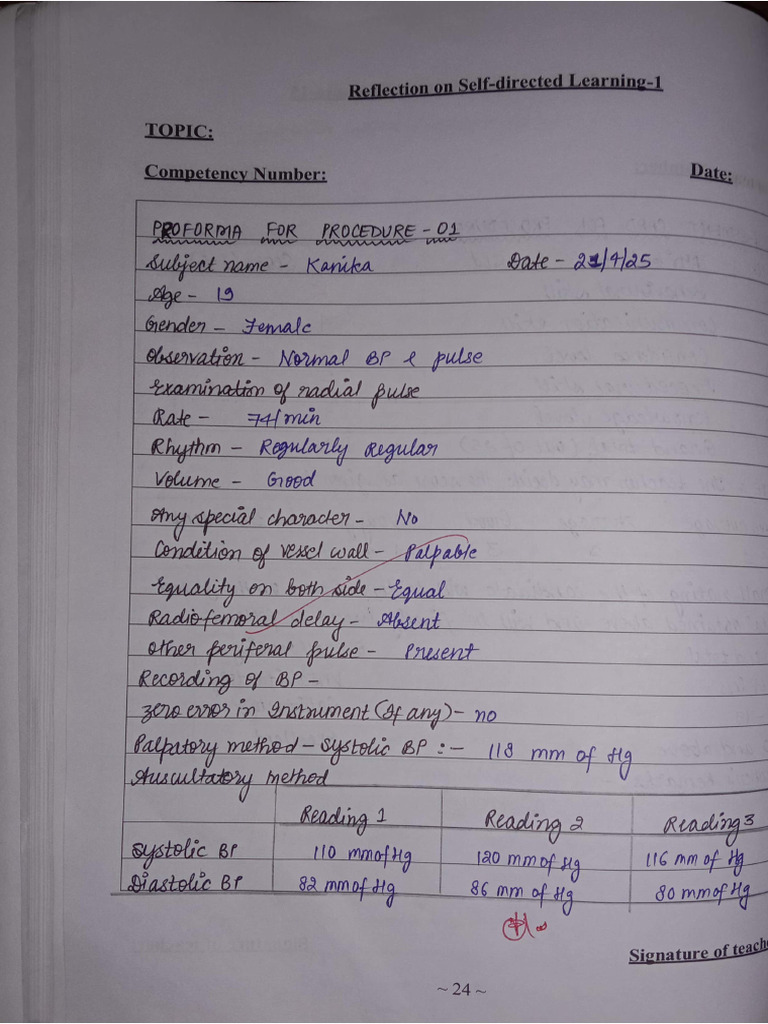 Reflection on Self-directed Learning-1
TOPIC:
Competency Number: Date:
PROFORMA FOR PROCEDURE - 01
Subject name - Kanika Date - 21/4/25
Age - 19
Gender - Female
Observation - Normal BP & pulse
Examination of radial pulse
Rate - 74/min
Rhythm - Regularly Regular
Volume - Good
Any special character - No
Condition of vessel wall - Palpable
Equality on both side - Equal
Radiofemoral delay - Absent
Other periferal pulse - Present
Recording of BP -
Zero error in Instrument (If any) - no
Palpatory method - Systolic BP :- 118 mm of Hg
Auscultatory method
Reading 1 Reading 2 Reading 3
Systolic BP 110 mm of Hg 120 mm of Hg 116 mm of Hg
Diastolic BP 82 mm of Hg 86 mm of Hg 80 mm of Hg
Signature of teach
~ 24 ~